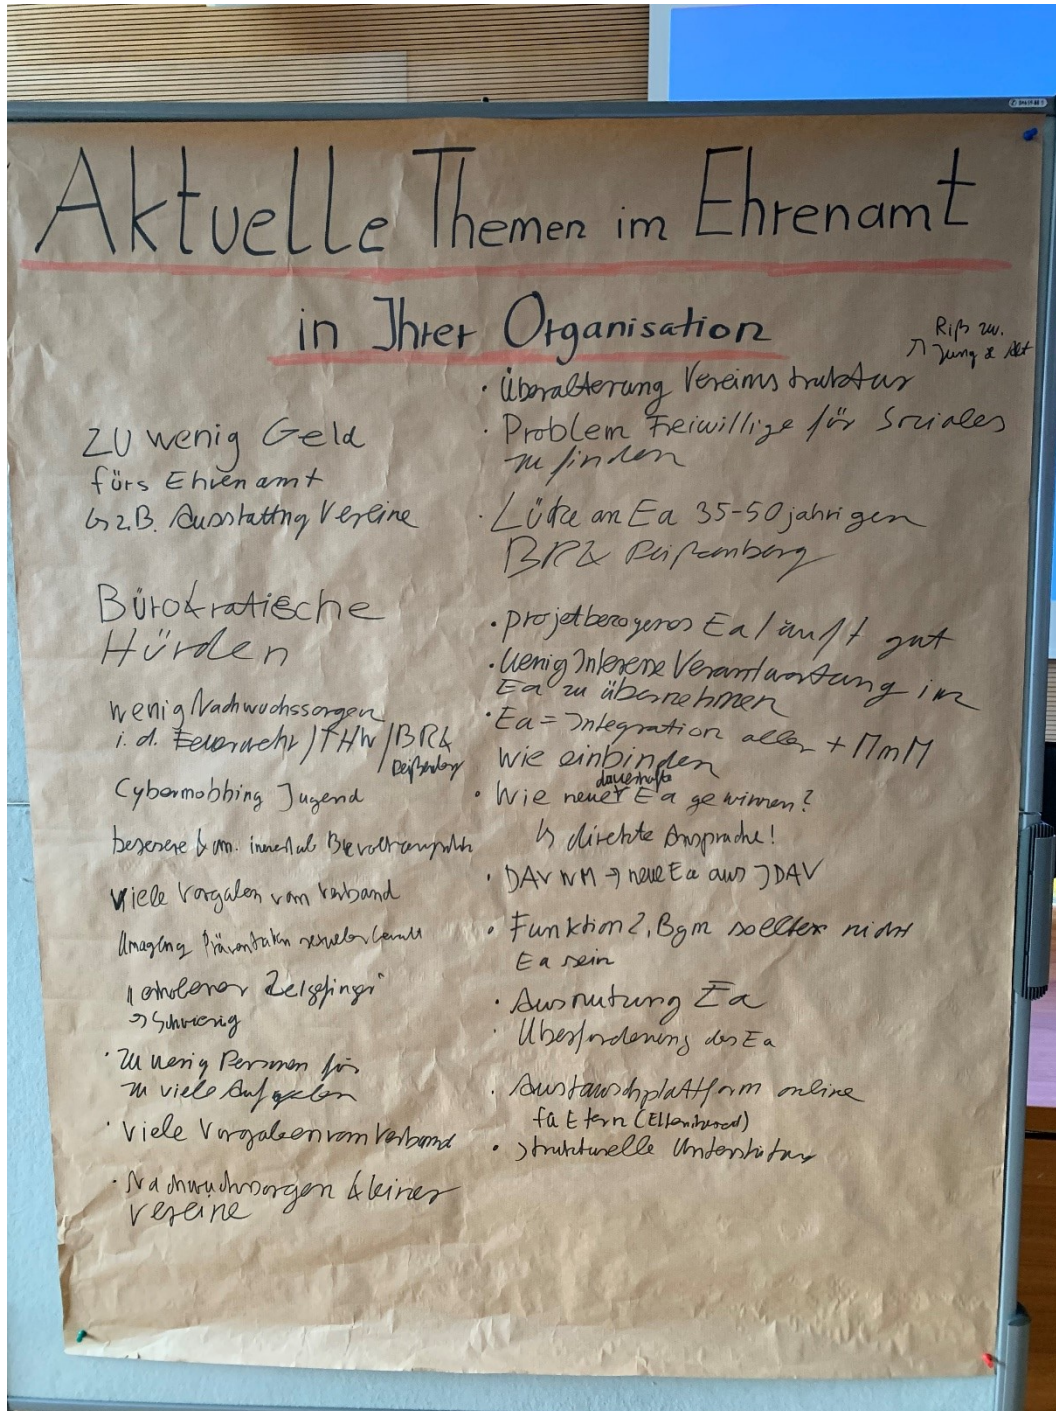 Aktuelle Themen im Ehrenamt
in Ihrer Organisation
zu wenig Geld
fürs Ehrenamt
↳ z.B. Ausstattng Vereine
Bürokratische
Hürden
wenig Nachwuchssorgen
i. d. Feuerwehr / THW / BRK
Peißenberg
Cybermobbing Jugend
bessere Kom. innerhalb
viele Vorgaben vom Verband
Umgang Prävention sexueller Gewalt
"erhobener Zeigefinger"
→ Schwierig
· zu wenig Personen für
zu viele Aufgaben
· viele Vorgaben vom Verband
· Nachwuchssorgen kleiner
Vereine
Riß zw.
↗ Jung & Alt
· Überalterung Vereinsstruktur
· Problem Freiwillige für Soziales
zu finden
· Lücke an Ea 35-50 jährigen
BRK Peißenberg
· projektbezogenes Ea läuft gut
· wenig Interesse Verantwortung im
Ea zu übernehmen
· Ea = Integration aller + MmM
wie einbinden
dauerhafte
· Wie neue Ea gewinnen?
↳ direkte Ansprache!
· DAV WM → neue Ea aus JDAV
· Funktion 2. Bgm sollte nicht
Ea sein
· Ausnutzung Ea
· Überforderung des Ea
· Austauschplattform online
(Elternbeirat)
· strukturelle Unterstützung